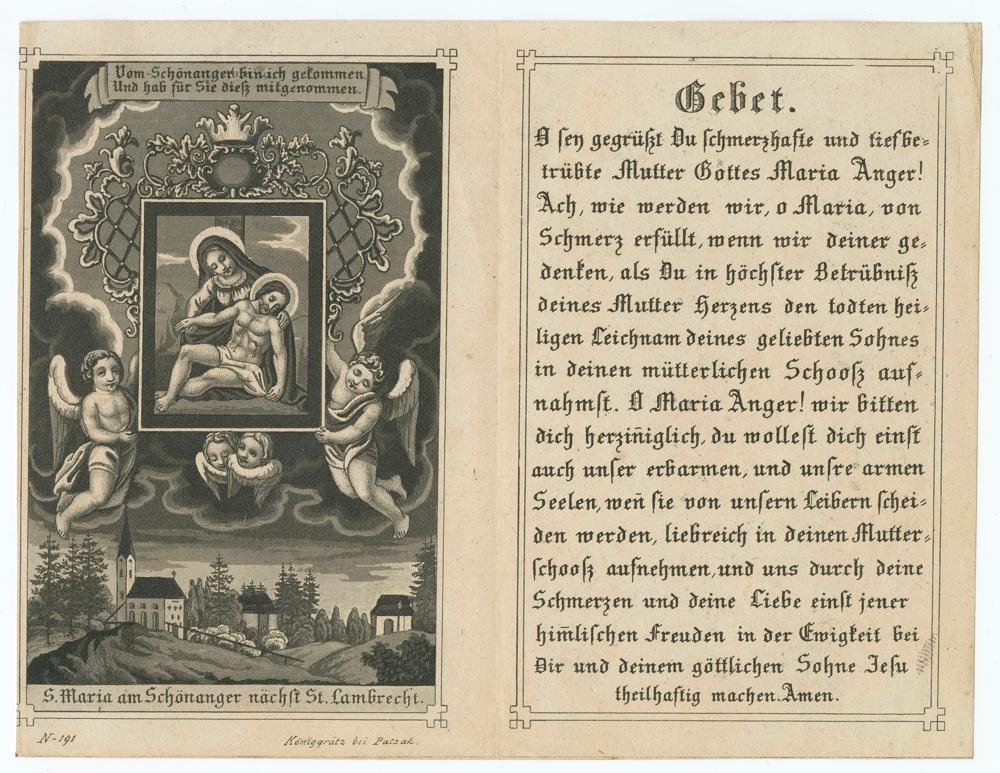 Vom Schönanger bin ich gekommen
Und hab für Sie dieß mitgenommen.
S. Maria am Schönanger nächst St. Lambrecht.
N-191
Königgrätz bei Patzak.
Gebet.
O sey gegrüßt Du schmerzhafte und tiefbe-
trübte Mutter Gottes Maria Anger!
Ach, wie werden wir, o Maria, von
Schmerz erfüllt, wenn wir deiner ge-
denken, als Du in höchster Betrübniß
deines Mutter Herzens den todten hei-
ligen Leichnam deines geliebten Sohnes
in deinen mütterlichen Schooß auf-
nahmst. O Maria Anger! wir bitten
dich herzin̄iglich, du wollest dich einst
auch unser erbarmen, und unsre armen
Seelen, wen̄ sie von unsern Leibern schei-
den werden, liebreich in deinen Mutter-
schooß aufnehmen, und uns durch deine
Schmerzen und deine Liebe einst jener
him̄lischen Freuden in der Ewigkeit bei
Dir und deinem göttlichen Sohne Jesu
theilhaftig machen. Amen.